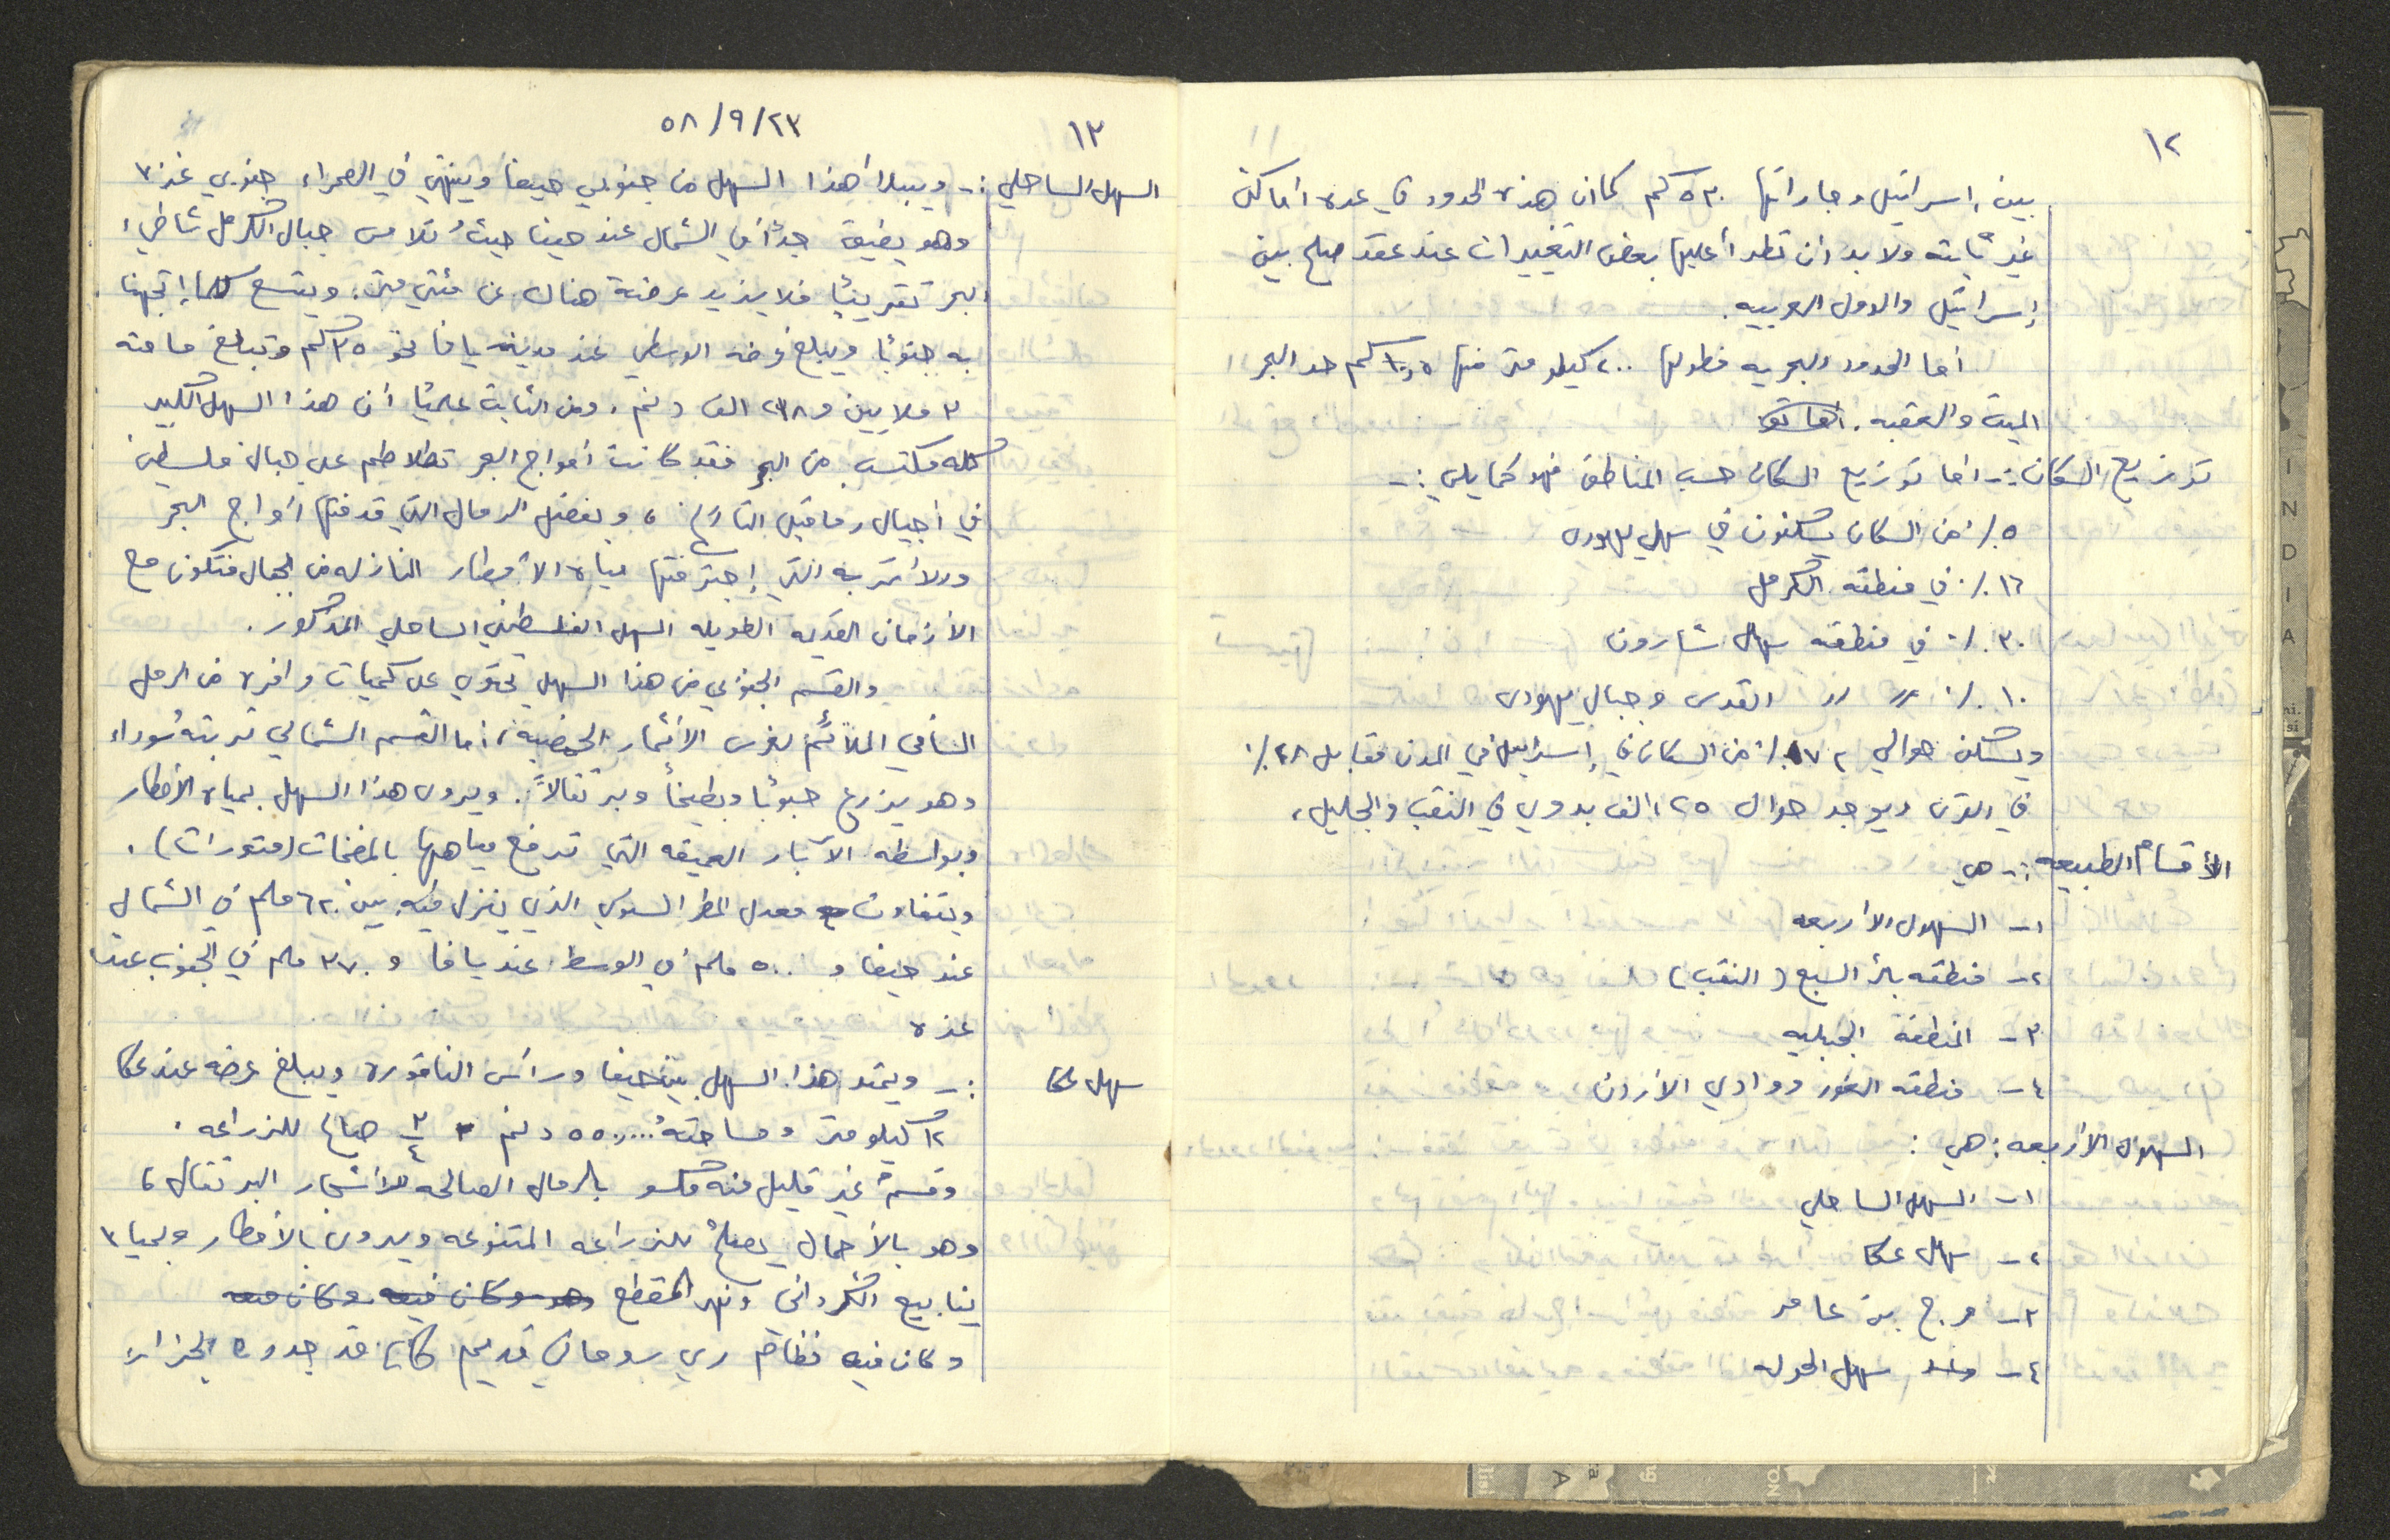 ١٢
بين إسرائيل وجاراتها ٥٣٠ كم كما ان هذه الحدود في عدة اماكن
غير ثابته ولا بد أن تطرأ عليها بعض التغييرات عند عقد صلح بين
إسرائيل والدول العربيه.
أما الحدود البحريه فطولها ٢٠٠ كيلو متر منها ١٠٫٥ كم حد البحر
الميت والعقبه.
توزيع السكان :- اما توزيع السكان حسب المناطق فهو كما يلي :-
٥٠٪ من السكان يسكنون في سهل يهوده
١٦٪ في منطقه الكرمل
٣٠٪ في منطقه سهل شارون
١٠٪ " " القدس وجبال يهودى
ويسكن حوالي ٧٢٪ من السكان في إسرائيل في المدن مقابل ٢٨٪
في القرى ويوجد حوالى ٢٥ الف بدوي في النقب والجليل.
الأقسام الطبيعه :- هي
١- السهول الأربعه
٢- منطقه بئر السبع (النقب)
٣- المنطقة الجبليه
٤- منطقه الغور ووادي الأردن
السهول الأربعه : هي :
١- السهل الساحلي
٢- سهل عكا
٣- مرج بن عامر
٤- سهل الحوله
١٣
٥٨/٩/٢٣
السهل الساحلي :- ويبدأ هذا السهل من جنوبي حيفا وينتهي في الصحراء جنوبي غزه
وهو يضيق جداً في الشمال عند حيفا حيثُ تلامس جبال الكرمل شاطيء
البحر تقريباً فلا يزيد عرضه هناك عن مئتي متر. ويتسع كلما إتجهنا
به جنوباً ويبلغ عرضه الوسطي عند مدينه يافا نحو ٢٥ كم وتبلغ مساحته
٣ ملايين و ٢٣٨ الف دنم. ومن الثابت علمياً أن هذا السهل الكبير
كله مكتسب من البحر فقد كانت أمواج البحر تتلاطم على جبال فلسطين
في أجيال ما قبل التاريخ، وبفضل الرمال التي قذفتها أمواج البحر
والأتربه التي إجترفتها مياه الأمطار النازله من الجبال فتكون مع
الأزمان القديمه الطويله السهل الفلسطيني الساحلي المذكور.
والقسم الجنوبي من هذا السهل يحتوي على كميات وافره من الرمل
السافي الملائم لغرس الأثمار الحمضية، اما القسم الشمالي تربته سوداء
وهو يزرع حبوباً وبطيخاً وبرتقالاً. ويروى هذا السهل بمياه الأمطار
وبواسطه الآبار العميقه التي ترفع مياهها بالمضخات (متورات).
ويتفاوت معدل المطر السنوي الذي ينزل فيه بين ٦٢٠ ملم في الشمال
عند حيفا و ٥٠٠ ملم في الوسط عند يافا و ٣٧٠ ملم في الجنوب عند
غزه
سهل عكا :- ويمتد هذا السهل بين حيفا ورأس الناقورة ويبلغ عرضه عند عكا
١٢ كيلو متر ومساحتهُ ٥٥٠٫٠٠٠ دنم ٣/٤ صالح للزراعه.
وقسمٌ غير قليل منه مكسو بالرمال الصالحه لأشجار البرتقال،
وهو بالأجمال يصلح للزراعه المتنوعه ويروى بالأمطار وبمياه
ينابيع الكرداني ونهر المقطع وهو وكان فيه وكان فيه
وكان فيه نظام ري روماني قديم كان قد جدده الجزار